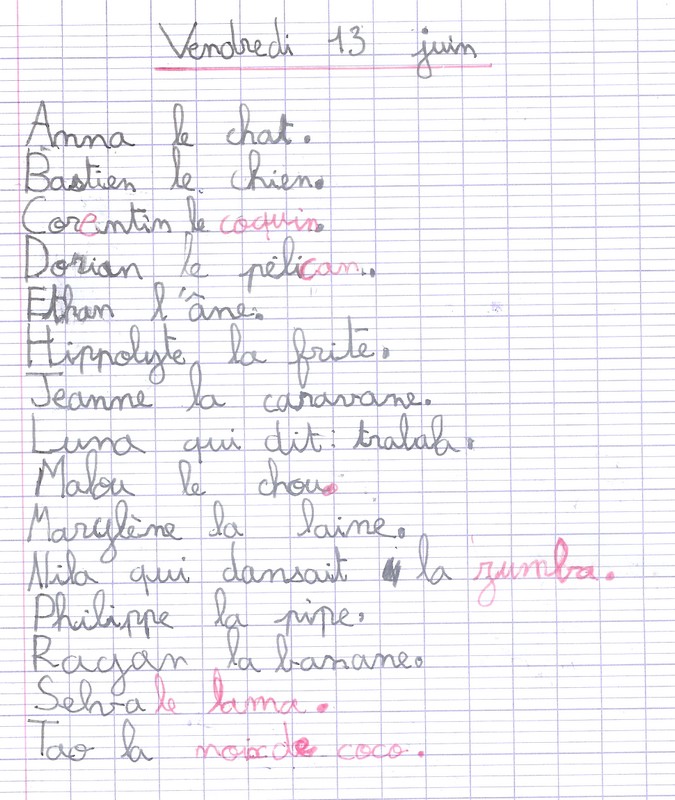 Vendredi 13 juin
Anna le chat.
Bastien le chien.
Corentin le coquin.
Dorian le pélican.
Ethan l'âne.
Hippolyte la frite.
Jeanne la caravane.
Luna qui dit : tralala.
Malou le chou.
Marylène la laine.
Nila qui dansait la zumba.
Philippe la pipe.
Rayan la banane.
Selva le lama.
Tao la noix de coco.